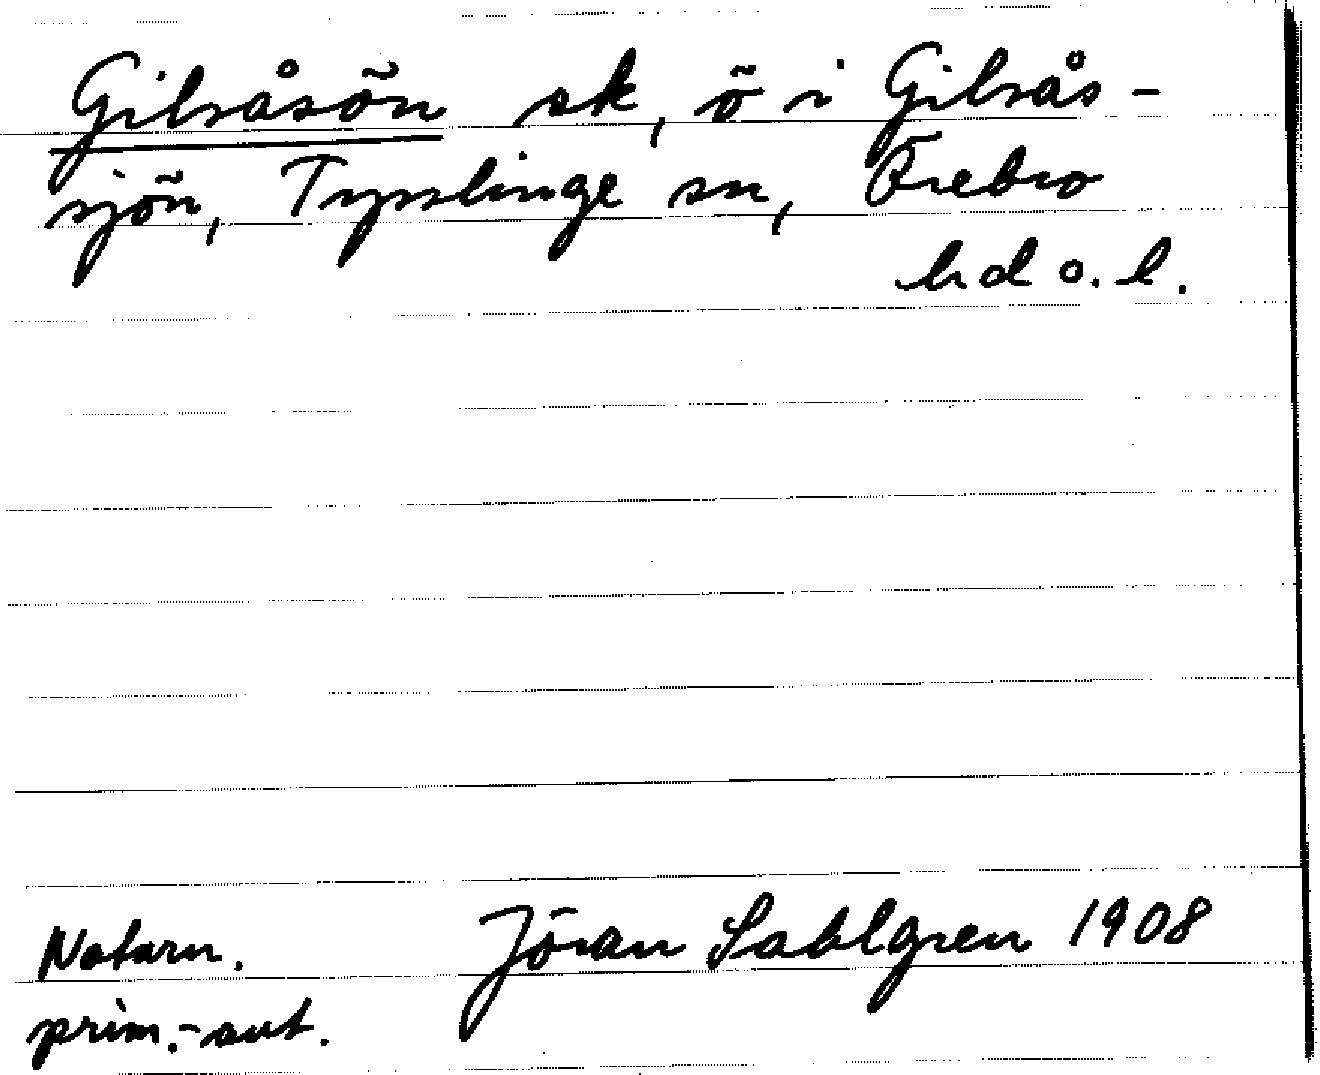 Gilsåsön sk, ö i Gilsås-
sjön, Tysslinge sn, Örebro
hd o. l.
Natarn. Jöran Sahlgren 1908
prim.-ant.